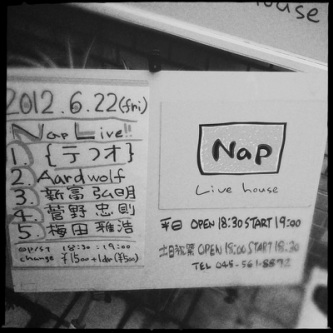 ouse
2012.6.22(fri)
Nap Live!!
1. {テヲオ}
2. Aardwolf
3. 新富 弘明
4. 菅野 忠則
5. 梅田 雅浩
op/st 18:30 : 19:00
charge ¥1500+1dr(¥500)
Nap
Live house
平日 OPEN 18:30 START 19:00
土日祝祭 OPEN 18:00 START 18:30
TEL 045-561-8892